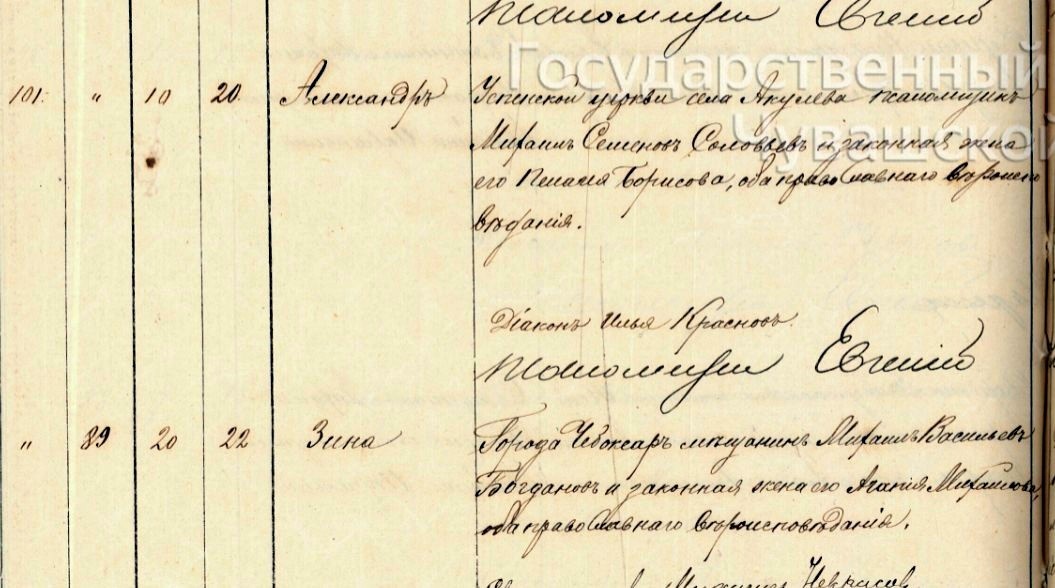 Псаломщикъ Евгеній
Государственный
Чувашской
101. " 10 20. Александръ Успенской церкви села Акулева псаломщикъ
Михаилъ Семеновъ Соловьевъ и законная жена
его Пелагія Борисова, оба православнаго вѣроиспо
вѣданія.
Діаконъ Илья Красновъ.
Псаломщикъ Евгеній
" 89 20 22 Зина Города Чебоксаръ мѣщанинъ Михаилъ Васильевъ
Богдановъ и законная жена его Агапія Михайлова,
оба православнаго вѣроисповѣданія.
Некрасов